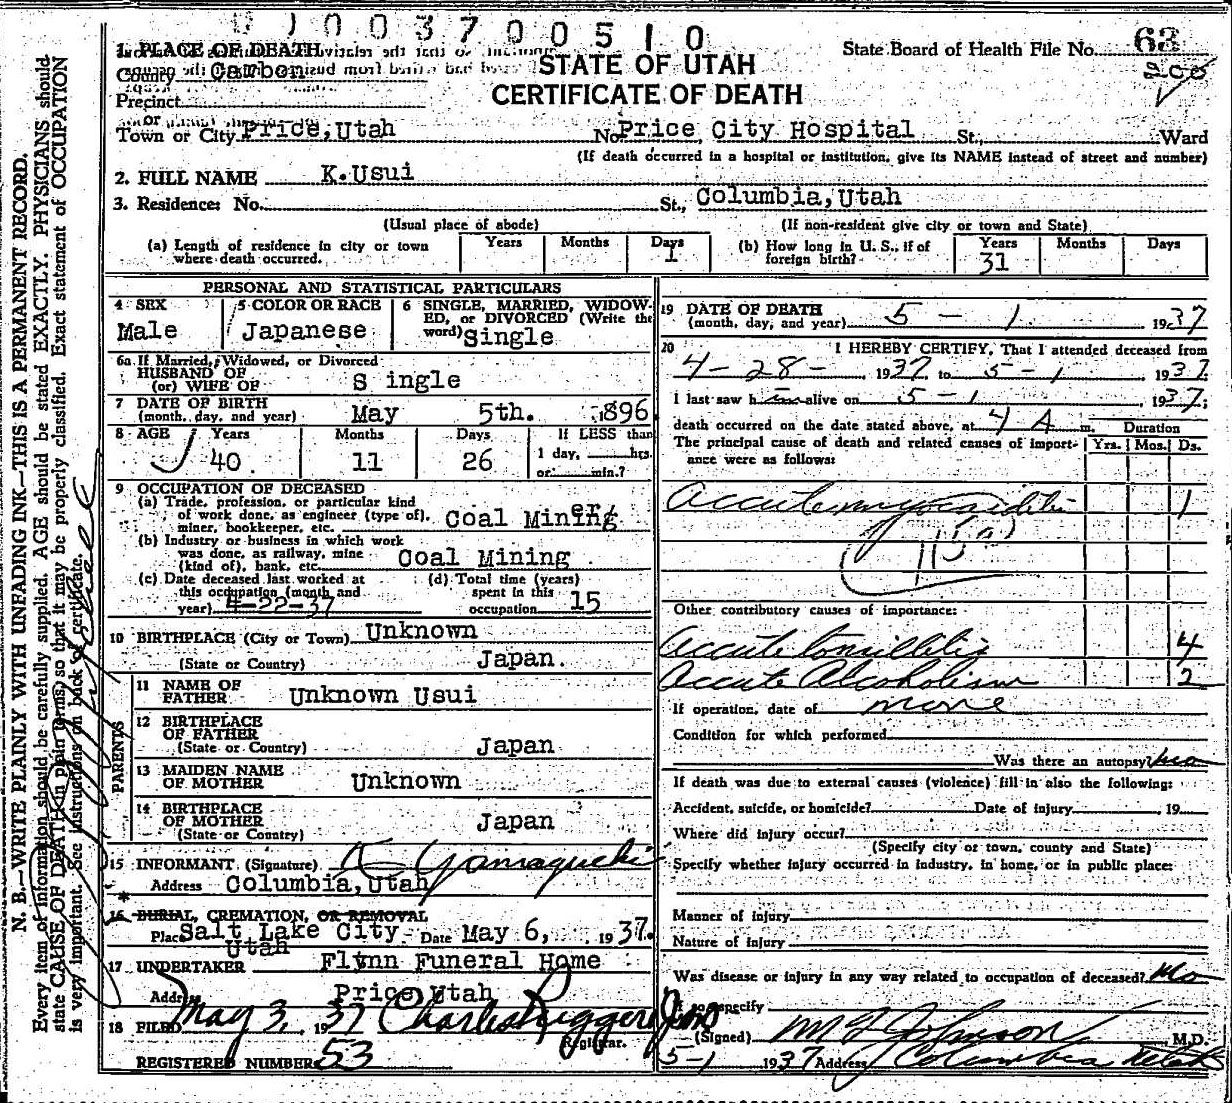 0 1 0 0 3 7 0 0 5 1 0
1. PLACE OF DEATH
State Board of Health File No. 63
County Carbon
STATE OF UTAH
Precinct
CERTIFICATE OF DEATH
or
Town or City Price, Utah No. Price City Hospital St., Ward
(If death occurred in a hospital or institution, give its NAME instead of street and number)
2. FULL NAME K. Usui
3. Residence: No. St., Columbia, Utah
(Usual place of abode) (If non-resident give city or town and State)
(a) Length of residence in city or town where death occurred. Years Months Days 1
(b) How long in U. S., if of foreign birth? Years 31 Months Days
PERSONAL AND STATISTICAL PARTICULARS
4 SEX Male
5 COLOR OR RACE Japanese
6 SINGLE, MARRIED, WIDOWED, or DIVORCED (Write the word) Single
6a If Married, Widowed, or Divorced
HUSBAND OF
(or) WIFE OF S ingle
7 DATE OF BIRTH
(month, day, and year) May 5th. 1896
8 AGE Years 40 Months 11 Days 26 If LESS than 1 day, hrs. or min.?
9 OCCUPATION OF DECEASED
(a) Trade, profession, or particular kind
of work done, as engineer (type of),
miner, bookkeeper, etc. Coal Mining er
(b) Industry or business in which work
was done, as railway, mine
(kind of), bank, etc. Coal Mining
(c) Date deceased last worked at
this occupation (month and
year) 4-22-37
(d) Total time (years)
spent in this
occupation 15
10 BIRTHPLACE (City or Town) Unknown
(State or Country) Japan.
PARENTS
11 NAME OF
FATHER Unknown Usui
12 BIRTHPLACE
OF FATHER
(State or Country) Japan
13 MAIDEN NAME
OF MOTHER Unknown
14 BIRTHPLACE
OF MOTHER
(State or Country) Japan
15 INFORMANT (Signature) K Yamaguchi
Address Columbia, Utah
*
16 BURIAL, CREMATION, OR REMOVAL
Place Salt Lake City Date May 6, 1937.
Utah
17 UNDERTAKER Flynn Funeral Home
Addr Price, Utah
18 FILED May 3, 1937 Charles Ruggeri Jr
Registrar.
REGISTERED NUMBER 53
19 DATE OF DEATH
(month, day, and year) 5 - 1 1937
20 I HEREBY CERTIFY, That I attended deceased from
4-28- 1937 to 5-1 1937
I last saw h im alive on 5-1 1937;
death occurred on the date stated above, at 4 A m. Duration
The principal cause of death and related causes of importance were as follows: Yrs. Mos. Ds.
Accute myocarditis 1
Other contributory causes of importance:
Accute tonsillitis 4
Accute Alcoholism 2
If operation, date of none
Condition for which performed
Was there an autopsy? no
If death was due to external causes (violence) fill in also the following:
Accident, suicide, or homicide? Date of injury 19
Where did injury occur?
(Specify city or town, county and State)
Specify whether injury occurred in industry, in home, or in public place:
Manner of injury
Nature of injury
Was disease or injury in any way related to occupation of deceased? No
If so specify
(Signed) Johnson M.D.
5-1 1937 Address Columbia Utah
N. B.—WRITE PLAINLY WITH UNFADING INK—THIS IS A PERMANENT RECORD.
Every item of information should be carefully supplied. AGE should be stated EXACTLY. PHYSICIANS should
state CAUSE OF DEATH in plain terms, so that it may be properly classified. Exact statement of OCCUPATION
is very important. See instructions on back of certificate.